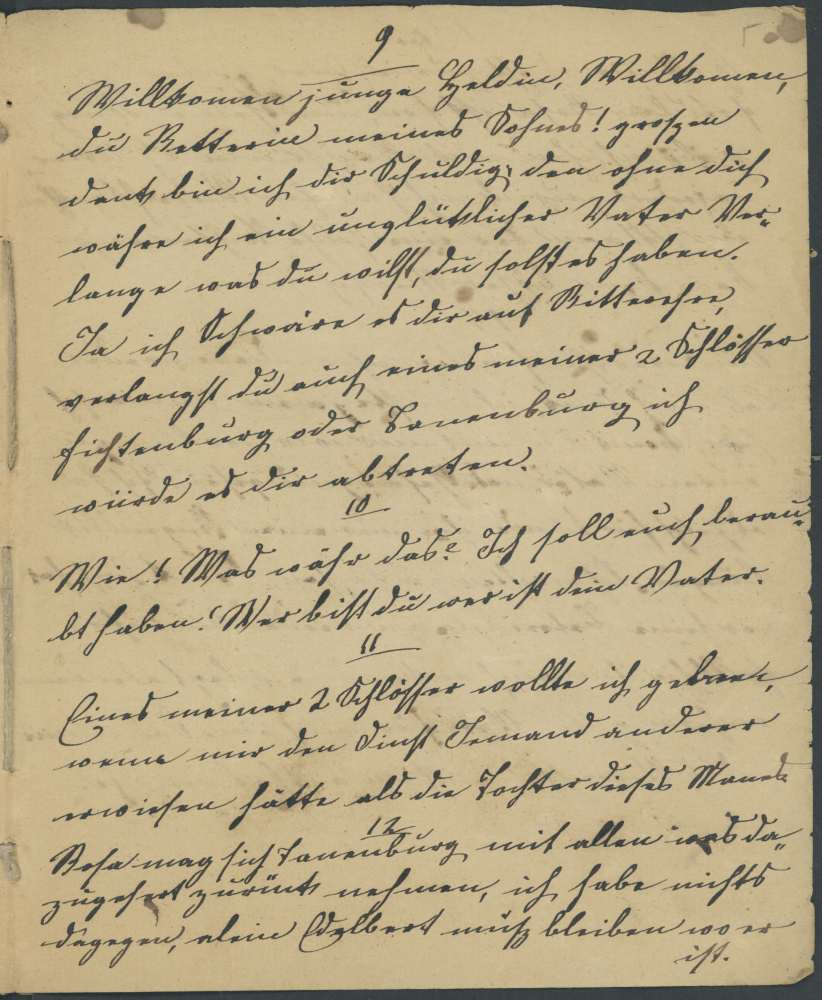 9
Willkomen junge Heldin, Willkomen,
du Retterin meines Sohnes! groszen
dank bin ich dir Schuldig, den ohne dich
währe ich ein unglüklicher Vater Ver-
lange was du wilst, du solst es haben.
Ja ich Schwöre es dir auf Ritterehre,
verlangst du auch eines meiner 2 Schlösser
Fichtenburg oder Tanenburg ich
würde es dir abtreten.
10
Wie! Was währ das? Ich soll euch berau-
bt haben! Wer bist du wer ist dein Vater.
11
Eines meiner 2 Schlösser wollte ich geben,
wenn mir den Dinst Jemand anderer
erwiesen hätte als die Tochter dieses Manes
12
Rosa mag sich Tanenburg mit allen was da-
zugehert zurück nehmen, ich habe nichts
dagegen, alein Edelbert musz bleiben wo er
ist.